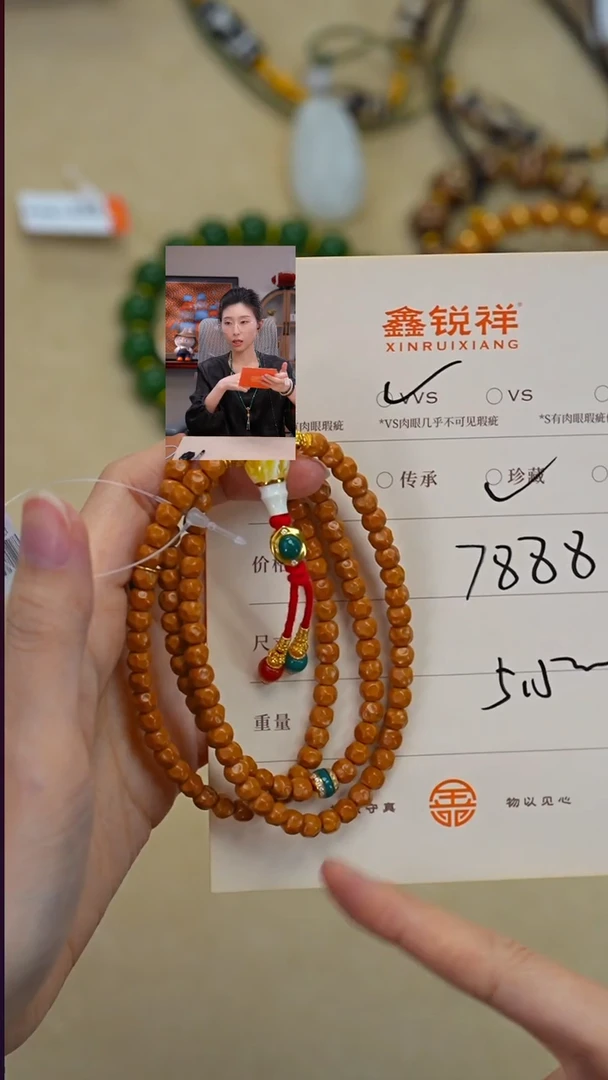 鑫锐祥
XINRUIXIANG
VVS VS
有肉眼瑕疵 *VS肉眼几乎不可见瑕疵 *S有肉眼瑕疵
传承 珍藏
价格
7888
尺
重量
守真 物以见心